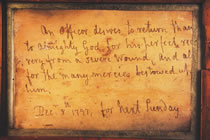 An Officer desires to return Than
to Almighty God for his perfect reco
very from a severe Wound, and al
for the many mercies bestowed up
him.
Dec. 8th 1797, for next Sunday